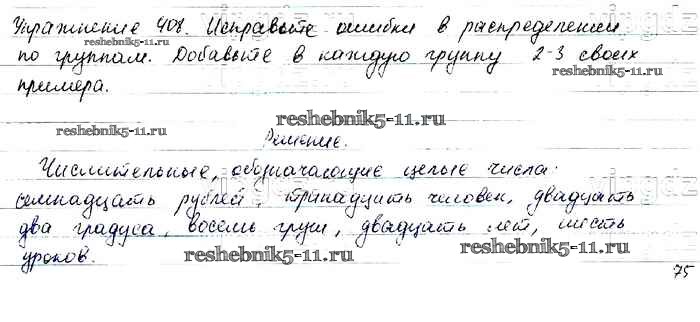 Упражнение 408. Исправьте ошибки в распределении
по группам. Добавьте в каждую группу 2-3 своих
примера.
reshebnik5-11.ru
reshebnik5-11.ru
reshebnik5-11.ru
reshebnik5-11.ru
Решение.
Числительные, обозначающие целые числа:
семнадцать рублей тринадцать человек, двадцать
два градуса, восемь груш, двадцать лет, шесть
reshebnik5-11.ru
reshebnik5-11.ru
уроков.
75
reshebnik5-11.ru